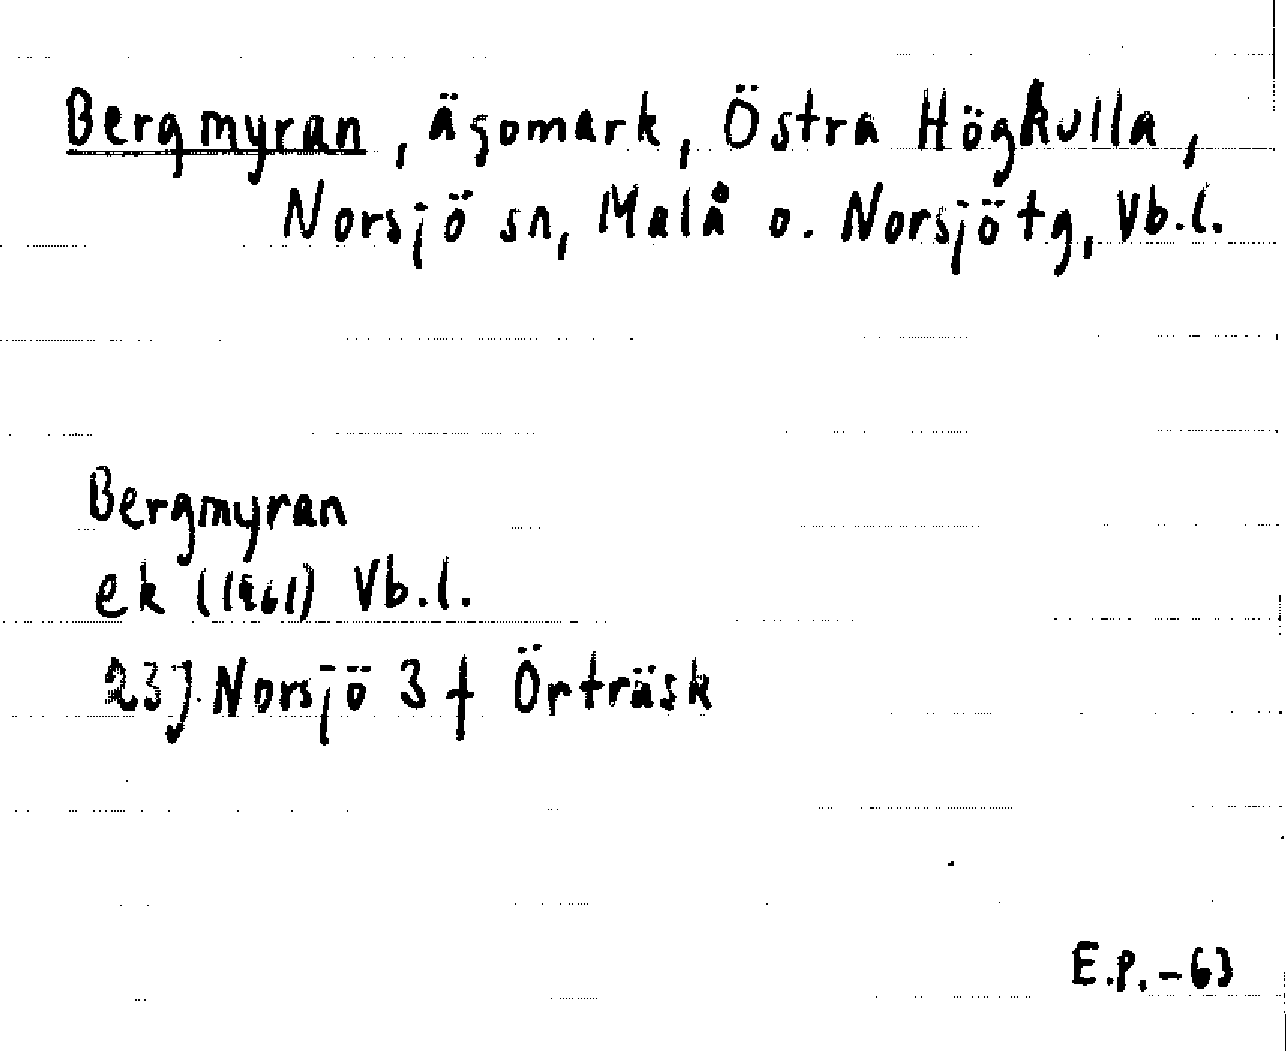 Bergmyran, ägomark, Östra Högkulla,
Norsjö sn, Malå o. Norsjö tg, Vb.l.
Bergmyran
ek (1961) Vb.l.
23J Norsjö 3 f Örträsk
E.P.-63